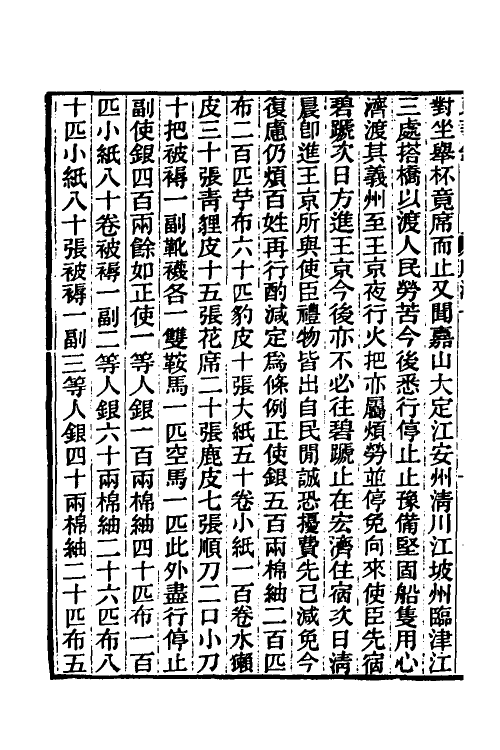 對坐舉杯竟席而止又聞嘉山大定江安州清川江坡州臨津江
三處搭橋以渡人民勞苦今後悉行停止止豫備堅固船隻用心
濟渡其義州至王京夜行火把亦屬煩勞並停免向來使臣先宿
碧蹏次日方進王京今後亦不必往碧蹏止在宏濟住宿次日清
晨卽進王京所與使臣禮物皆出自民閒誠恐擾費先已減免今
復慮仍煩百姓再行酌減定爲條例正使銀五百兩棉紬二百匹
布二百匹苧布六十匹豹皮十張大紙五十卷小紙一百卷水獺
皮三十張靑貍皮十五張花席二十張鹿皮七張順刀二口小刀
十把被褥一副靴襪各一雙鞍馬一匹空馬一匹此外盡行停止
副使銀四百兩餘如正使一等人銀一百兩棉紬四十匹布一百
匹小紙八十卷被褥一副二等人銀六十兩棉紬二十六匹布八
十匹小紙八十張被褥一副三等人銀四十兩棉紬二十匹布五